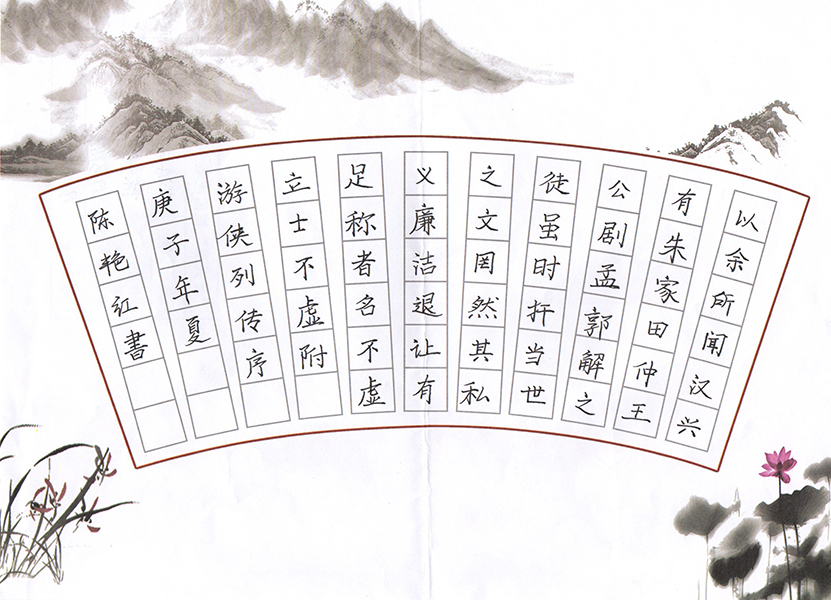 以余所闻汉兴
有朱家田仲王
公剧孟郭解之
徒虽时扞当世
之文罔然其私
义廉洁退让有
足称者名不虚
立士不虚附
游侠列传序
庚子年夏
陈艳红書